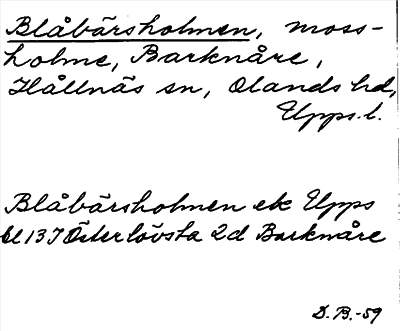 Blåbärsholmen, moss-
holme, Barknåre,
Hållnäs sn, Olands hd,
Upps. l.
Blåbärsholmen ek Upps
bl 13 I Österlövsta 2d Barknåre
D. B. -59